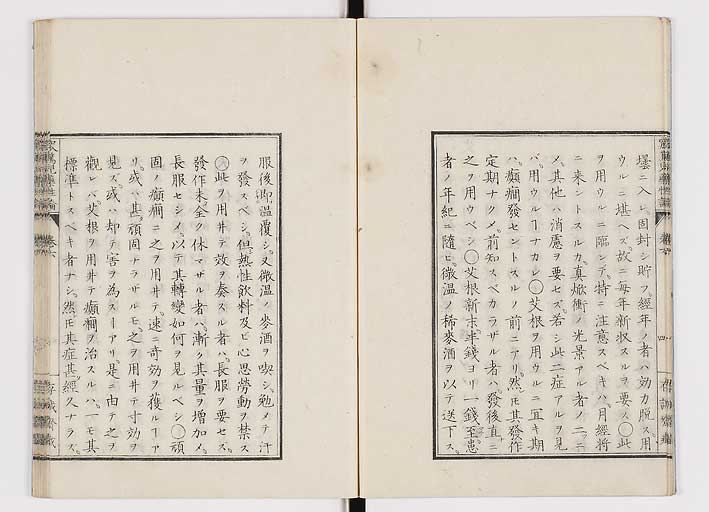 壜ニ入レ固封シ貯フ。經年ノ者ハ効力脱ス用
ウルニ堪ヘズ。故ニ毎年新收スルヲ要ス〇此
ヲ用ウルニ臨ンデ。特ニ注意スベキハ。月經將
ニ來ントスルカ。真焮衝ノ光景アル者ノ二ニ
メ。其他ハ消慮ヲ要セズ。若シ此二症アルヲ見
バ。用ウルヿナカレ〇艾根ヲ用ウルニ宜キ期
ハ。癲癇發セントスルノ前ニアリ。然𪜈其發作
定期ナクメ。前知スベカラザル者ハ。發後直ニ
之ヲ用ウベシ〇艾根新末。半錢ヨリ一錢至。患
者ノ年紀ニ隨ヒ。微温ノ稀麥酒ヲ以テ送下ス。
服後即温覆シ。又微温ノ麥酒ヲ喫シ。勉メテ汗
ヲ發スベシ。但熱性飲料及ビ心思勞動ヲ禁ス
〇此ヲ用井テ效ヲ奏スル者ハ。長服ヲ要セズ。
發作未全ク休マザル者ハ。漸ク其量ヲ増加メ。
長服セシメ。以テ其轉變如何ヲ見ルベシ〇頑
固ノ癲癇ニ之ヲ用井テ。速ニ奇効ヲ獲ルヿア
リ。或ハ甚頑固ナラザルモ。之ヲ用井テ寸効ヲ
見ズ。或ハ却テ害ヲ為スヿアリ。是ニ由テ之ヲ
觀レバ。艾根ヲ用井テ癲癇ヲ治スルハ。一モ其
標準トスベキ者ナシ。然𪜈其症甚經久ナラズ。